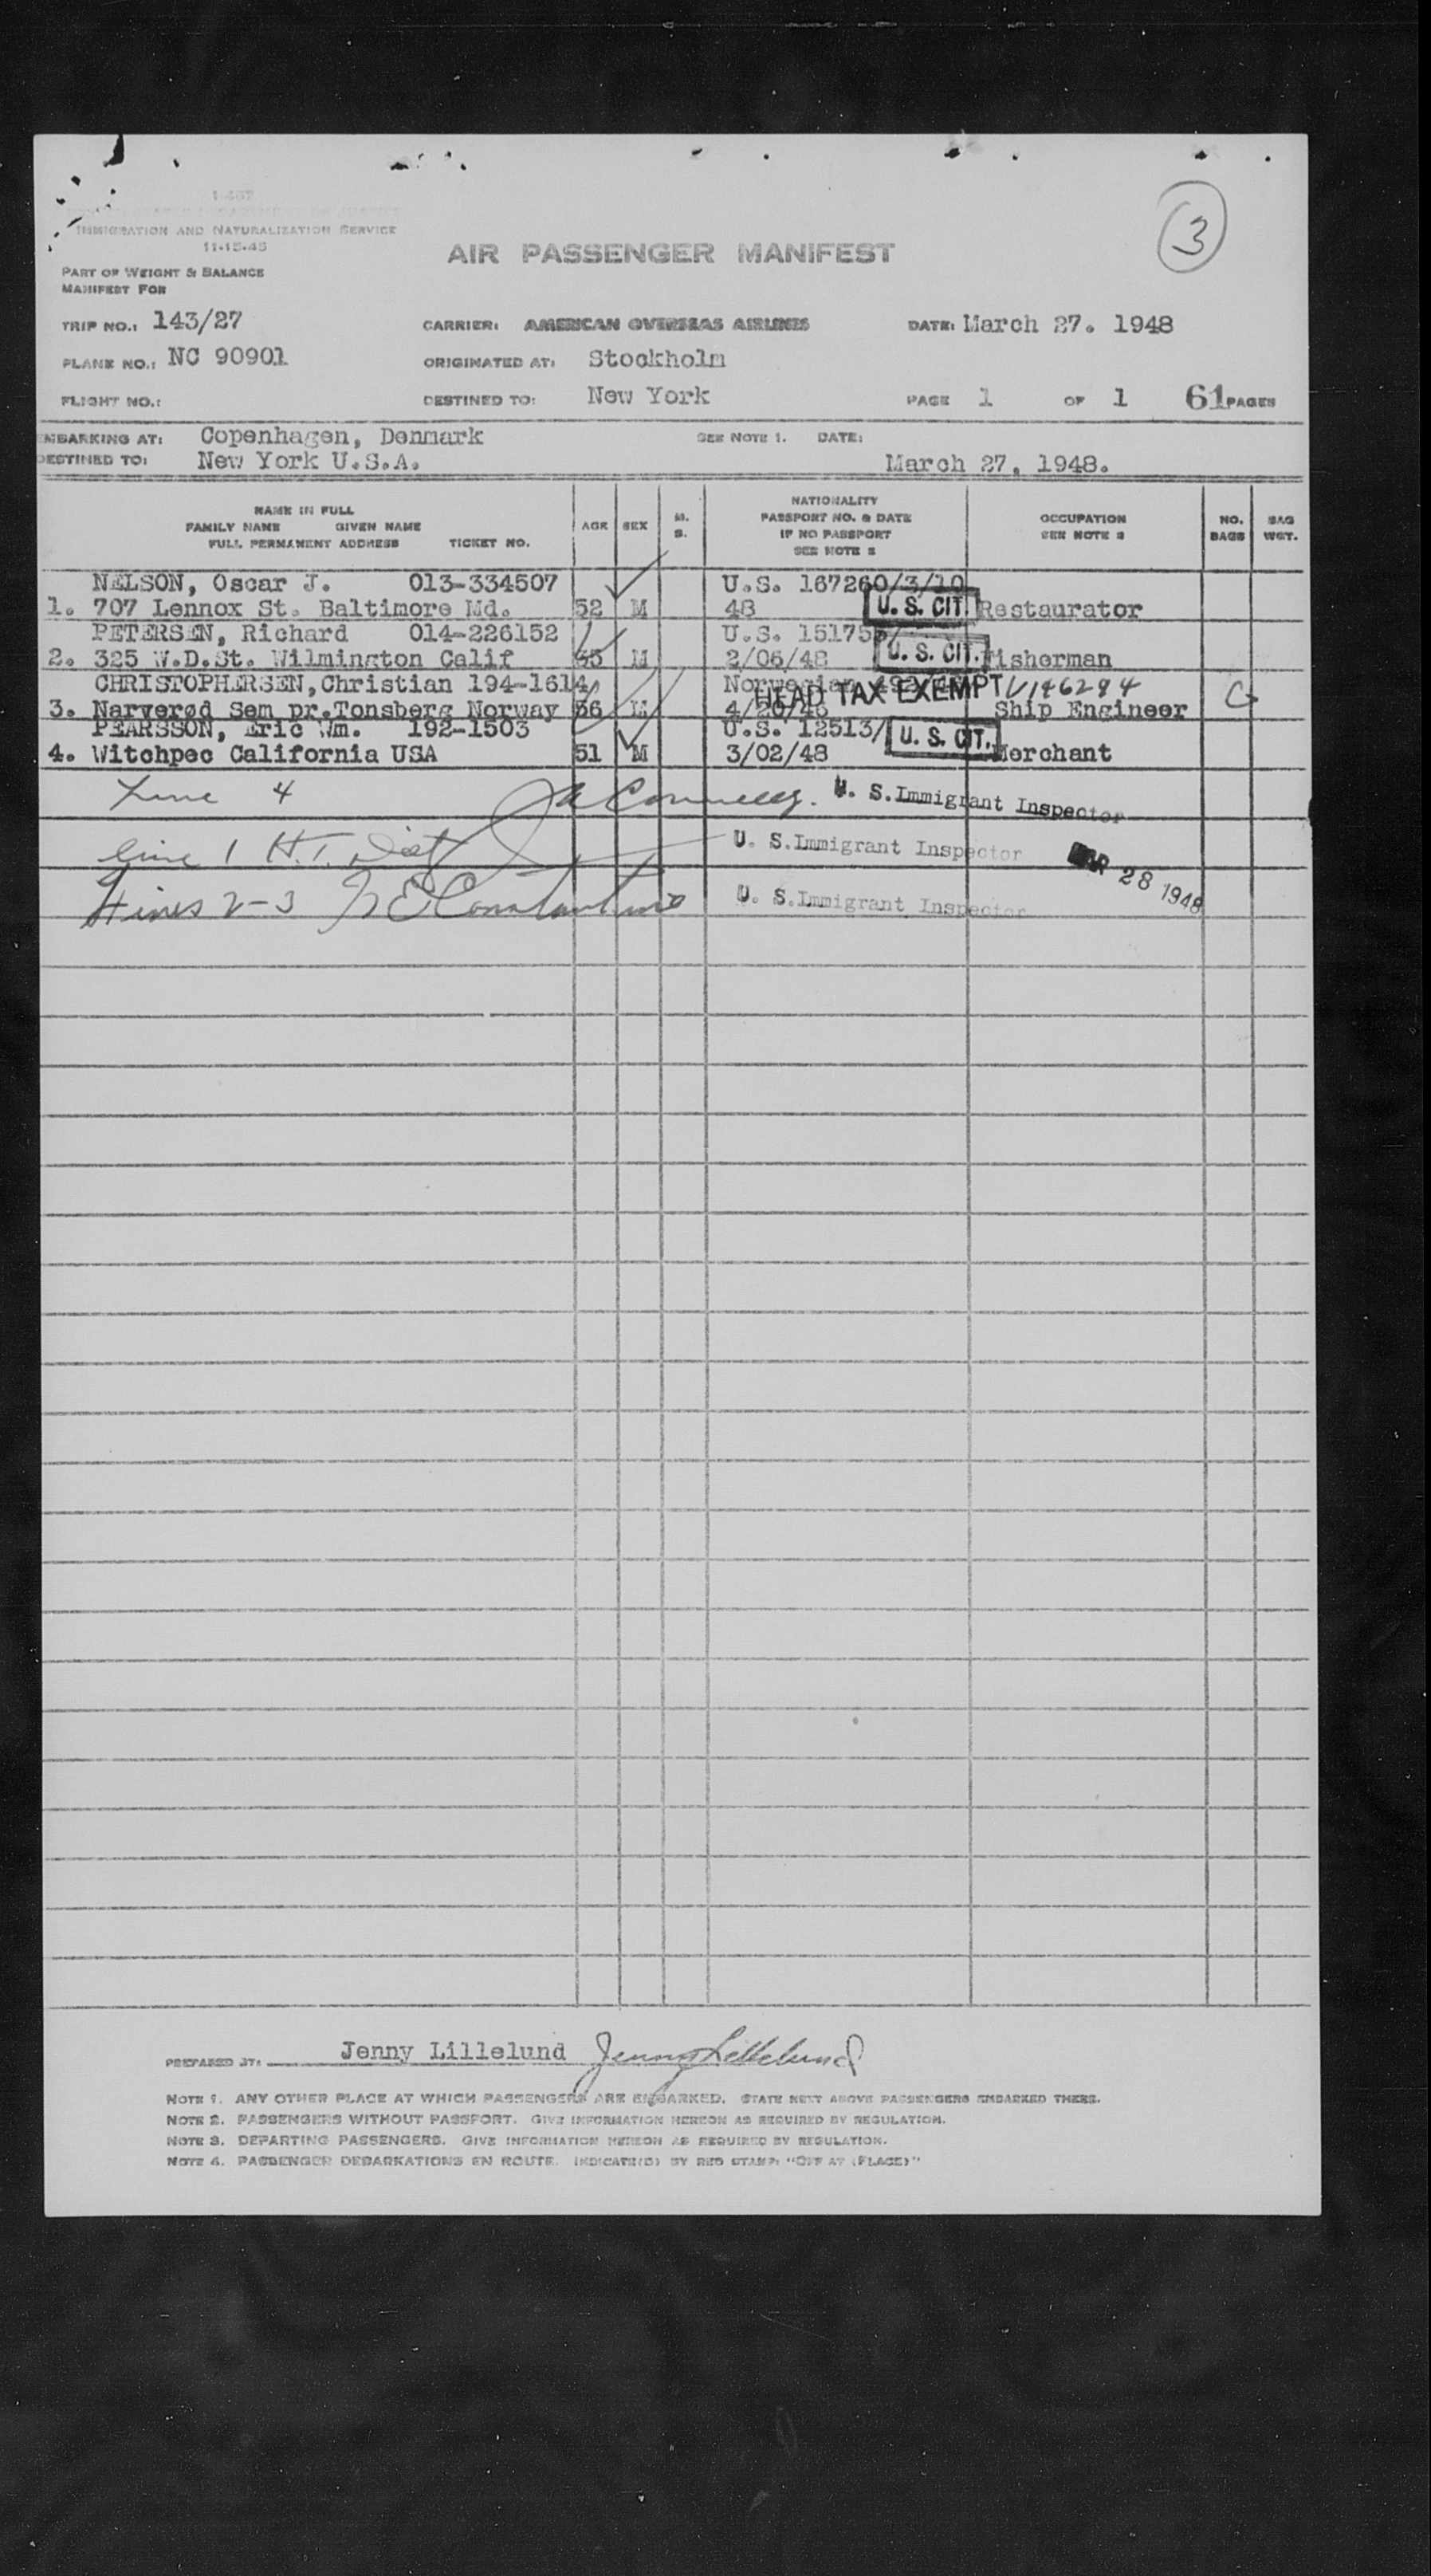 3
I-467
IMMIGRATION AND NATURALIZATION SERVICE
11-15-45
AIR PASSENGER MANIFEST
PART OF WEIGHT & BALANCE
MANIFEST FOR
TRIP NO.: 143/27 CARRIER: AMERICAN OVERSEAS AIRLINES DATE: March 27. 1948
PLANE NO.: NC 90901 ORIGINATED AT: Stockholm
FLIGHT NO.: DESTINED TO: New York PAGE 1 OF 1 61 PAGES
EMBARKING AT: Copenhagen, Denmark SEE NOTE 1. DATE:
DESTINED TO: New York U.S.A. March 27, 1948.
NAME IN FULL
FAMILY NAME GIVEN NAME
FULL PERMANENT ADDRESS TICKET NO.
AGE SEX M. S.
NATIONALITY
PASSPORT NO. & DATE
IF NO PASSPORT
SEE NOTE 2
OCCUPATION
SEE NOTE 3
NO. BAGS
BAG WGT.
NELSON, Oscar J. 013-334507 U.S. 167260/3/10
1. 707 Lennox St. Baltimore Md. 52 M 48 U. S. CIT Restaurator
PETERSEN, Richard 014-226152 U.S. 15175
2. 325 W.D.St. Wilmington Calif M 2/06/48 U. S. CIT. Fisherman
CHRISTOPHERSEN, Christian 194-1614 Norwegian HEAD TAX EXEMPT V146284
3. Narverød Sem pr.Tonsberg Norway 36 M 4/26/46 Ship Engineer G
PEARSSON, Eric Wm. 192-1503 U.S. 12513/ U. S. CIT.
4. Witchpec California USA 51 M 3/02/48 Merchant
Line 4 U. S. Immigrant Inspector
line 1 H.T. U. S. Immigrant Inspector MAR 28 1948
Lines 2-3 U. S. Immigrant Inspector
PREPARED BY: Jenny Lillelund Jenny Lillelund
NOTE 1. ANY OTHER PLACE AT WHICH PASSENGERS ARE EMBARKED. STATE NEXT ABOVE PASSENGERS EMBARKED THERE.
NOTE 2. PASSENGERS WITHOUT PASSPORT. GIVE INFORMATION HEREON AS REQUIRED BY REGULATION.
NOTE 3. DEPARTING PASSENGERS. GIVE INFORMATION HEREON AS REQUIRED BY REGULATION.
NOTE 4. PASSENGER DEBARKATIONS EN ROUTE. INDICATE(D) BY RED STAMP: "OFF AT (PLACE)"